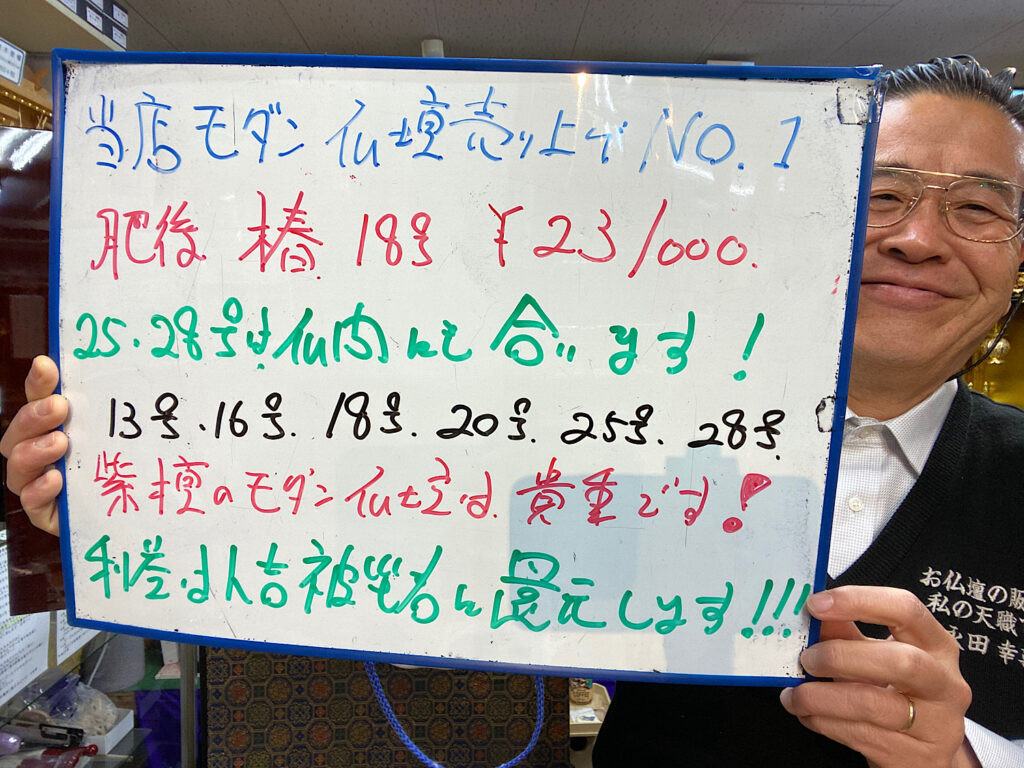 当店モダン仏壇売り上げNO.1
肥後 椿 18号 ¥23/000.
25.28号は仏内にも合います!
13号.16号.18号.20号.25号.28号
紫檀のモダン仏壇は貴重です!
利益は人吉被災者に還元します!!!
お仏壇の販
私の天職
永田 幸